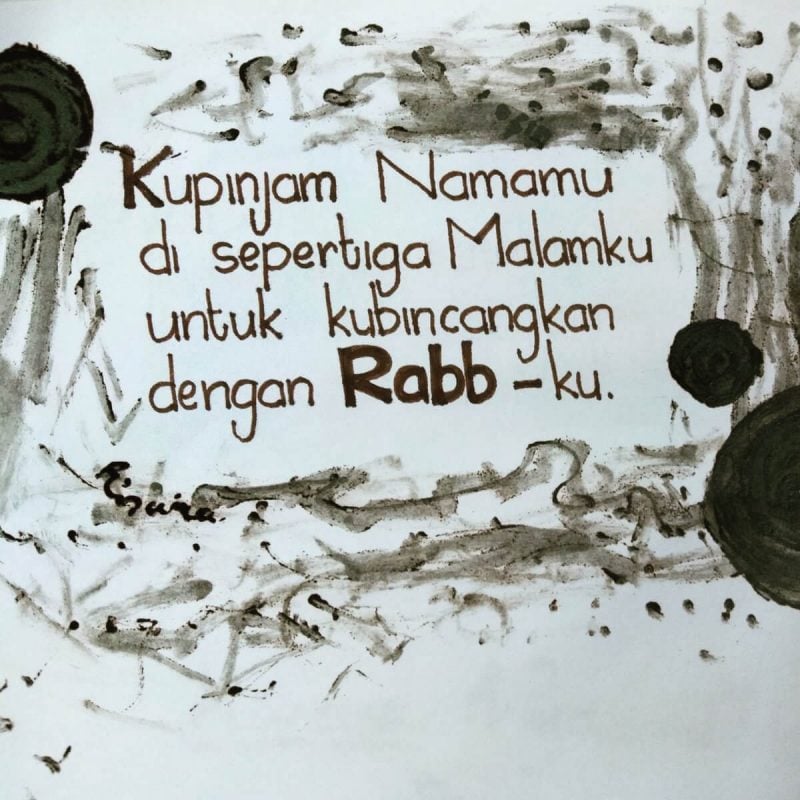 Kupinjam Namamu
di sepertiga Malamku
untuk kubincangkan
dengan Rabb -ku.